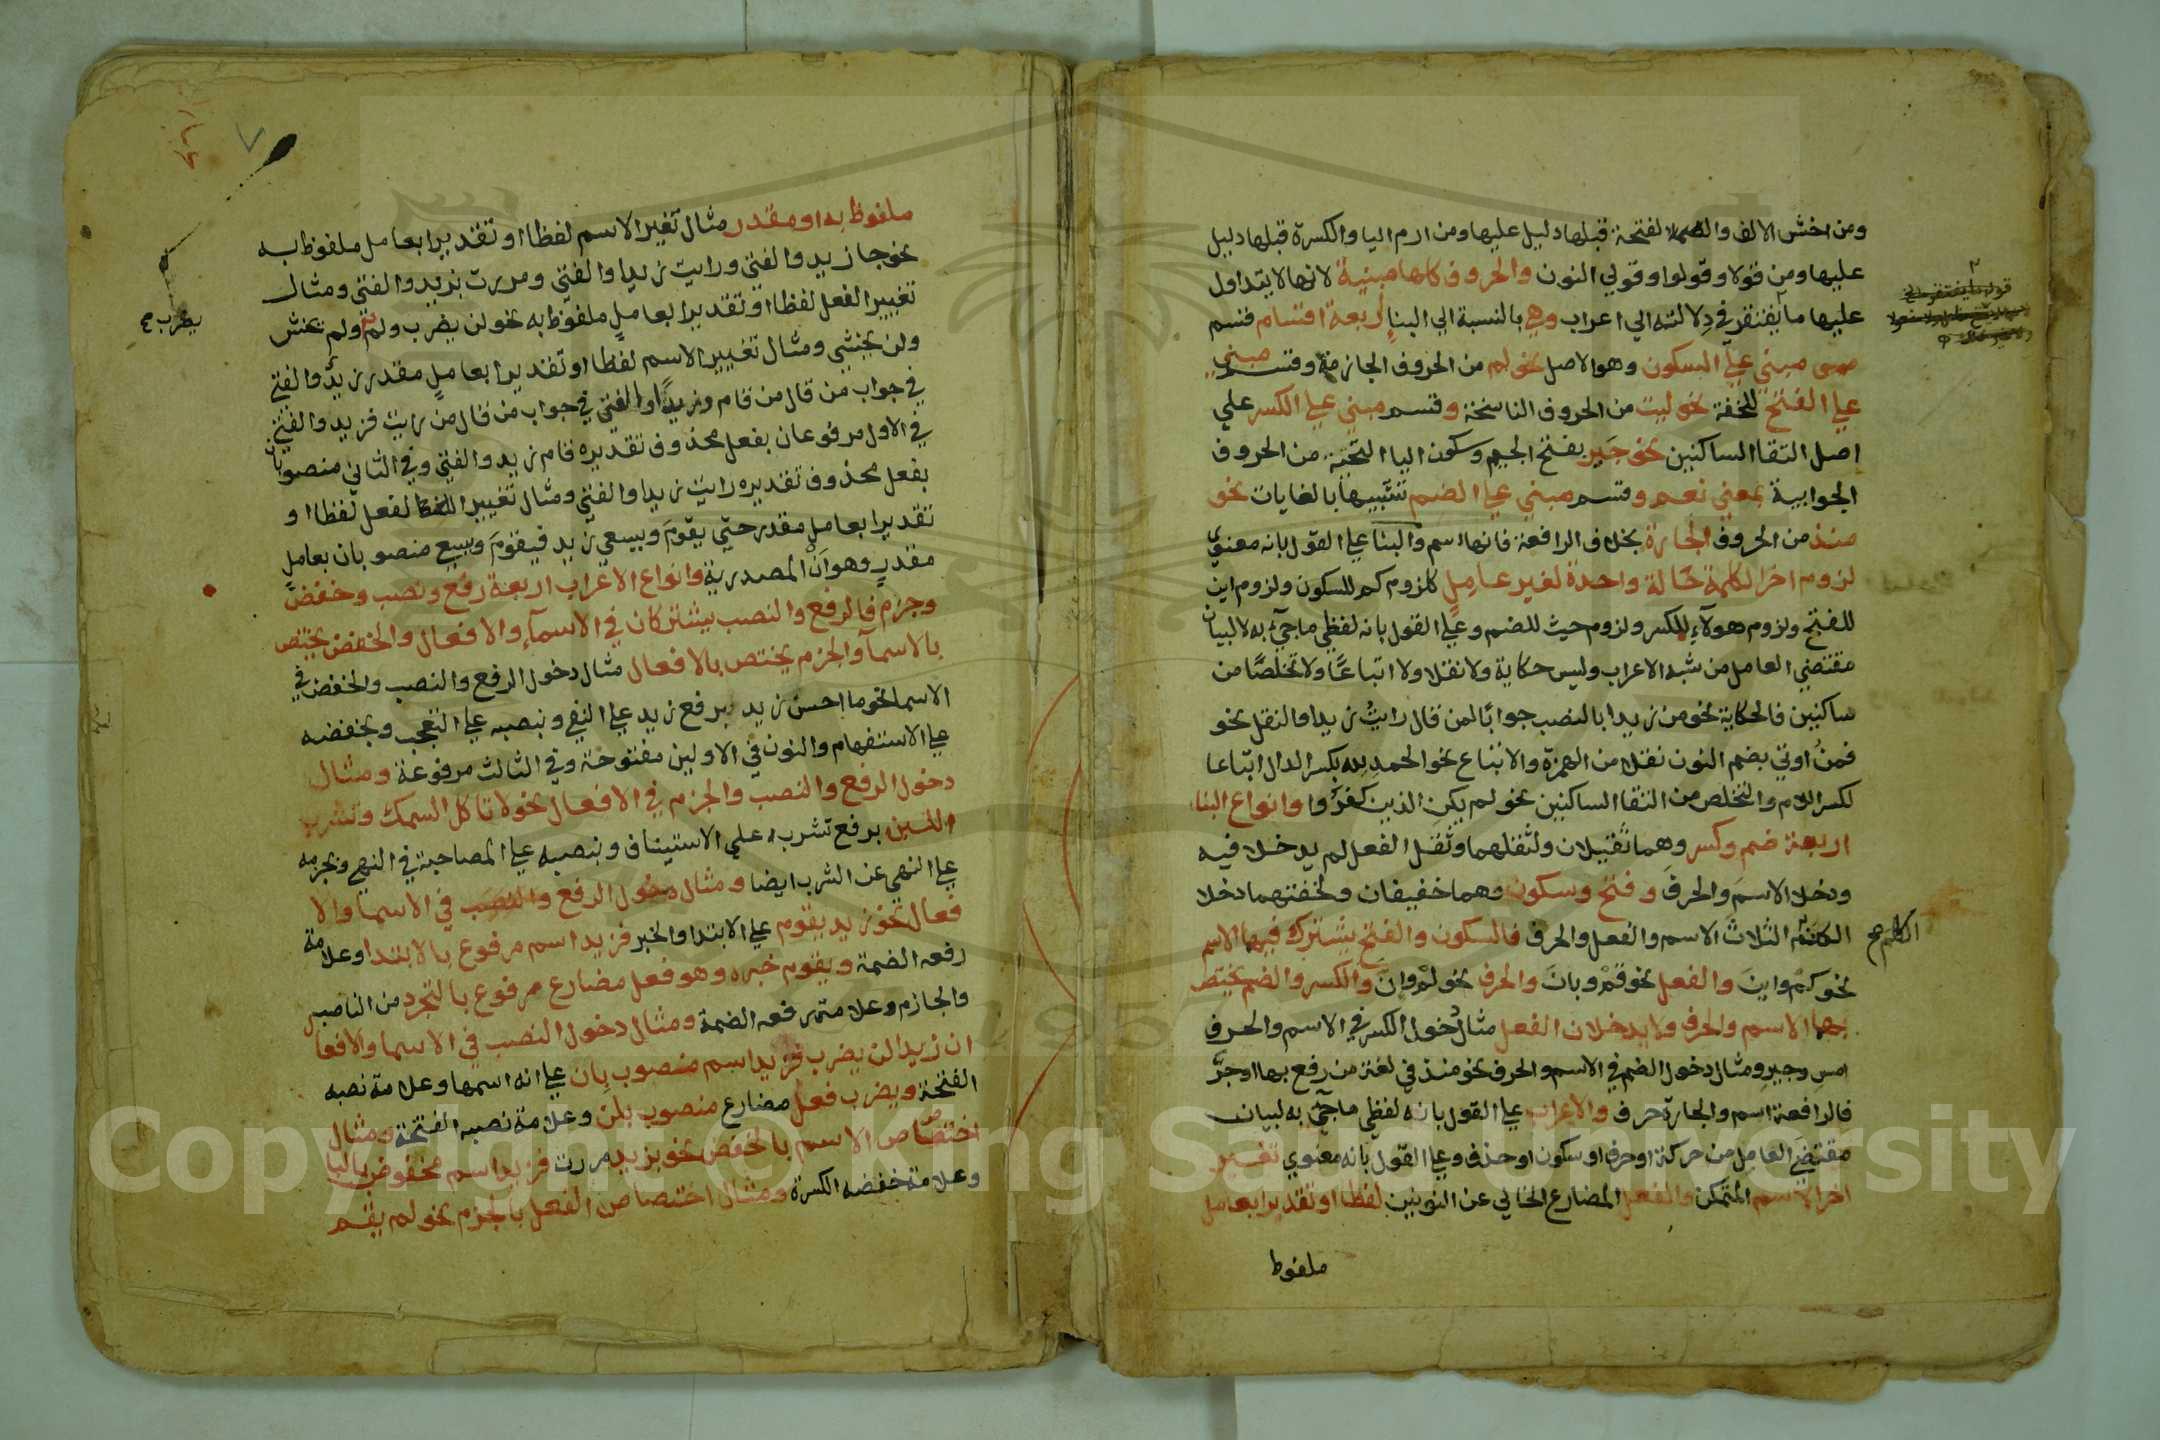 ومن اخش الالف والفتحة قبلها دليل عليها ومن ارم اليا والكسرة قبلها دليل
عليها ومن قولا وقولوا وقولي النون والحروف كلها مبنية لانها لا يتداول
عليها ما يفتقر في دلالته الي اعراب وهي بالنسبة الي البناء أربعة اقسام قسم
مبني علي السكون وهو الاصل نحو لم من الحروف الجازمة وقسم مبني
علي الفتح للخفة نحو ليت من الحروف الناسخة وقسم مبني علي الكسر علي
اصل التقا الساكنين نحو جَير بفتح الجيم وسكون اليا التحتية من الحروف
الجوابية بمعني نعم وقسم مبني علي الضم تشبيها بالغايات نحو
منذ من الحروف الجارة بخلاف الرافعة فانها اسم والبنا علي القول بانه معنوي
لزوم اخر الكلمة حَالة واحدة لغير عاملٍ كلزوم كم للسكون ولزوم اين
للفتح ولزوم هولآءِ للكسر ولزوم حيث للضم وعلي القول بانه لفظي ماجيَ به لا لبيان
مقتضي العامل من شبه الاعراب وليس حكاية ولا نقلا ولا اتباعًا ولا تخلصًا من
ساكنين فالحكاية نحو من زيدا بالنصب جوابًا لمن قال رايتُ زيدا والنقل نحو
فمنُ اوتي بضم النون نقلا من الهمزة والاتباع نحو الحمدِ لله بكسر الدال اتباعا
لكسر اللام والتخلص من التقا الساكنين نحو لم يكنِ الذين كفرُوا وانواع البناء
اربعة ضم وكسر وهما ثقيلان ولثقلهما وثقل الفعل لم يدخلا فيه
ودخلا الاسمَ والحرفَ وفتح وسكون وهما خفيفان ولخفتهما دخلا
الكلم الثلاثَ الاسم والفعل والحرف فالسكون والفتح يشترك فيهما الاسم
نحو كمْ واينَ والفعل نحو قمْ وبانَ والحرف نحو لمْ وانَّ والكسر والضم يختص
بهما الاسم والحرف ولا يدخلان الفعل مثال دُخول الكسر في الاسم والحرف
امسِ وجيرِ ومثال دخول الضم في الاسم والحرف نحو منذ في لغة من رفع بها او جرَّ
فالرافعة اسم والجارة حرف والاعراب علي القول بانه لفظي ماجيَ به لبيان
مقتضَي العامل من حركة او حرف او سكون او حذف وعلي القول بانه معنوي تغيير
اخر الاسم المتمكن والفعل المضارع الخالي عن النونين لفظا او تقديرا بعامل
ملفوظ
الكلم صح
ملفوظ به او مقدر مثال تغير الاسم لفظا او تقديرا بعامل ملفوظ به
نحو جا زيد والفتي ورايت زيدا والفتي ومررت بزيد والفتي ومثال
تغيير الفعل لفظا او تقديرا بعاملٍ ملفوظ به نحو لن يضرب ولم ولم يخش
ولن يخشي ومثال تغيير الاسم لفظا او تقديرا بعاملٍ مقدر زيدٌ والفتي
في جواب من قال من قام وزيدًا والفتي في جواب من قال من رايت فزيد والفتي
في الاول مرفوعان بفعل محذوف تقديره قام زيد والفتي وفي الثاني منصوبان
بفعل محذوف تقديره رايت زيدا والفتي ومثال تغيير الفعل لفظا او
تقديرا بعاملٍ مقدر حتّي يقومَ ويسعي زيد فيقومَ ويسعي منصوبان بعاملٍ
مقدرٍ وهو اَنْ المصدرية وانواع الاعراب اربعة رفع ونصب وخفض
وجزم فالرفع والنصب يشتركان في الاسمآءِ والافعال والخفض يختص
بالاسمآ والجزم يختص بالافعال مثال دخول الرفع والنصب والخفض في
الاسما نحو ما احسن زيد برفع زيد علي النفي وبنصبه علي التعجب وبخفضه
علي الاستفهام والنون في الاولين مفتوحة وفي الثالث مرفوعة ومثال
دخول الرفع والنصب والجزم في الافعال نحو لا تاكل السمك وتشرب
اللبن برفع تشرب علي الاستيناف وبنصبه علي المصاحبة في النهي وبجزمه
علي النهي عن الشرب ايضا ومثال دخول الرفع والنصب في الاسما والا
فعال نحو زيد يقوم علي الابتدا والخبر فزيد اسم مرفوع بالابتدا وعلامة
رفعه الضمة ويقوم خبره وهو فعل مضارع مرفوع بالتجرد من الناصب
والجازم وعلامة رفعه الضمة ومثال دخول النصب في الاسما والافعا
ان زيدا لن يضرب فزيدا اسم منصوب بان علي انه اسمها وعلامة نصبه
الفتحة ويضرب فعل مضارع منصوب بلن وعلامة نصبه الفتحة ومثال
اختصاص الاسم بالخفض نحو بزيد مررت فزيد اسم مخفوض باليا
وعلامة خفضه الكسرة ومثال اختصاص الفعل بالجزم نحو لم يقم
يضرب صح
٧
Copyright © King Saud University
1957